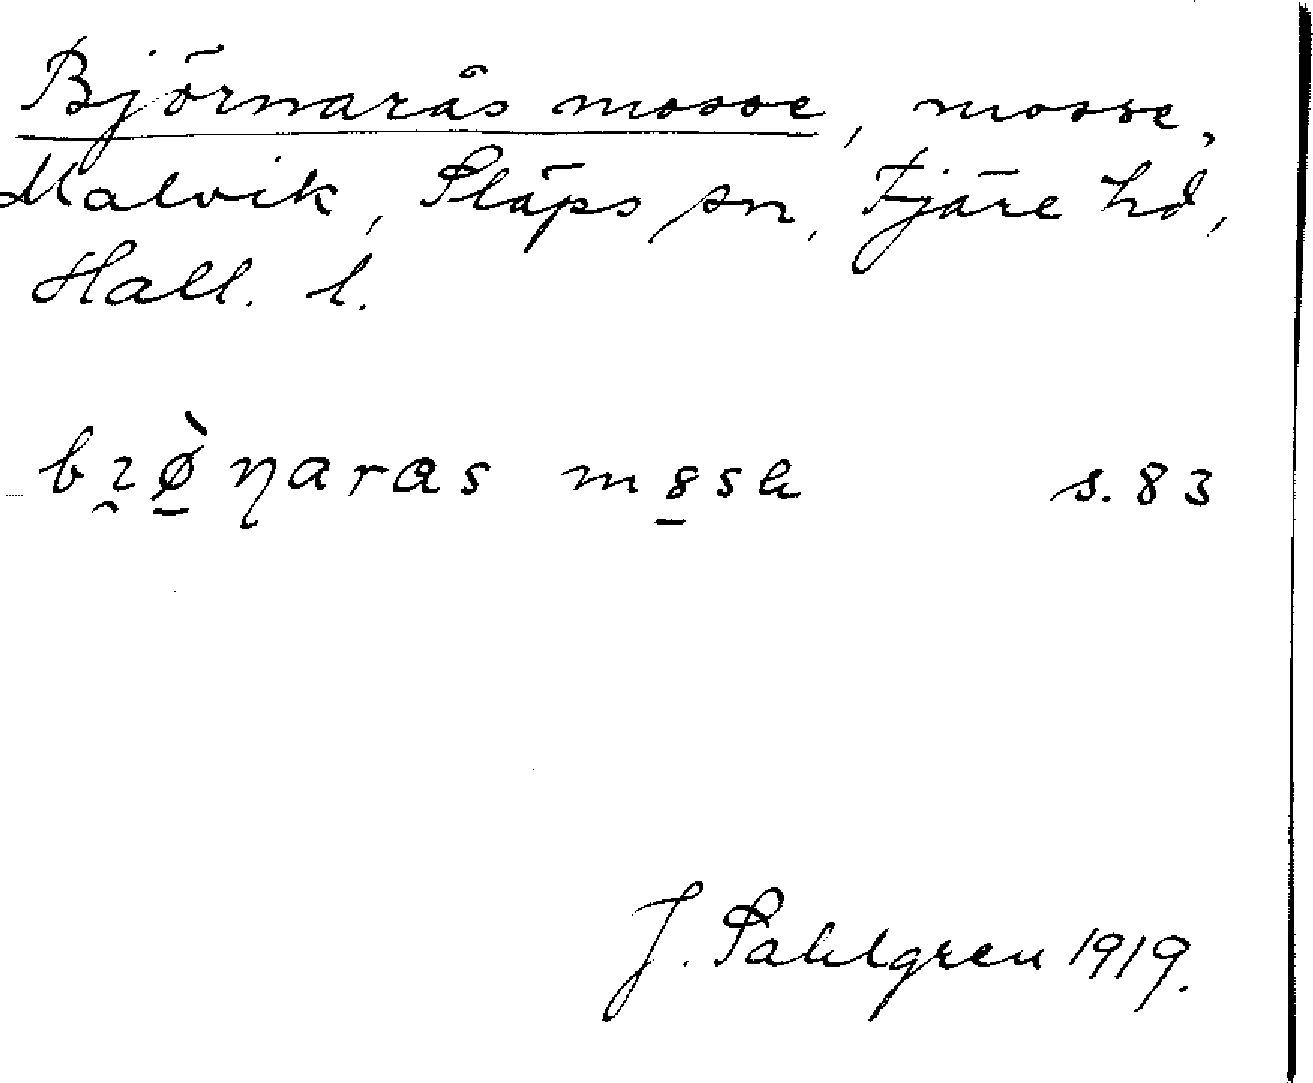 Björnarås mosse, mosse,
Malvik, Släps sn, Fjäre hd,
Hall. l.
bɿø̀ŋaras m8sa s. 83
J. Sahlgren 1919.